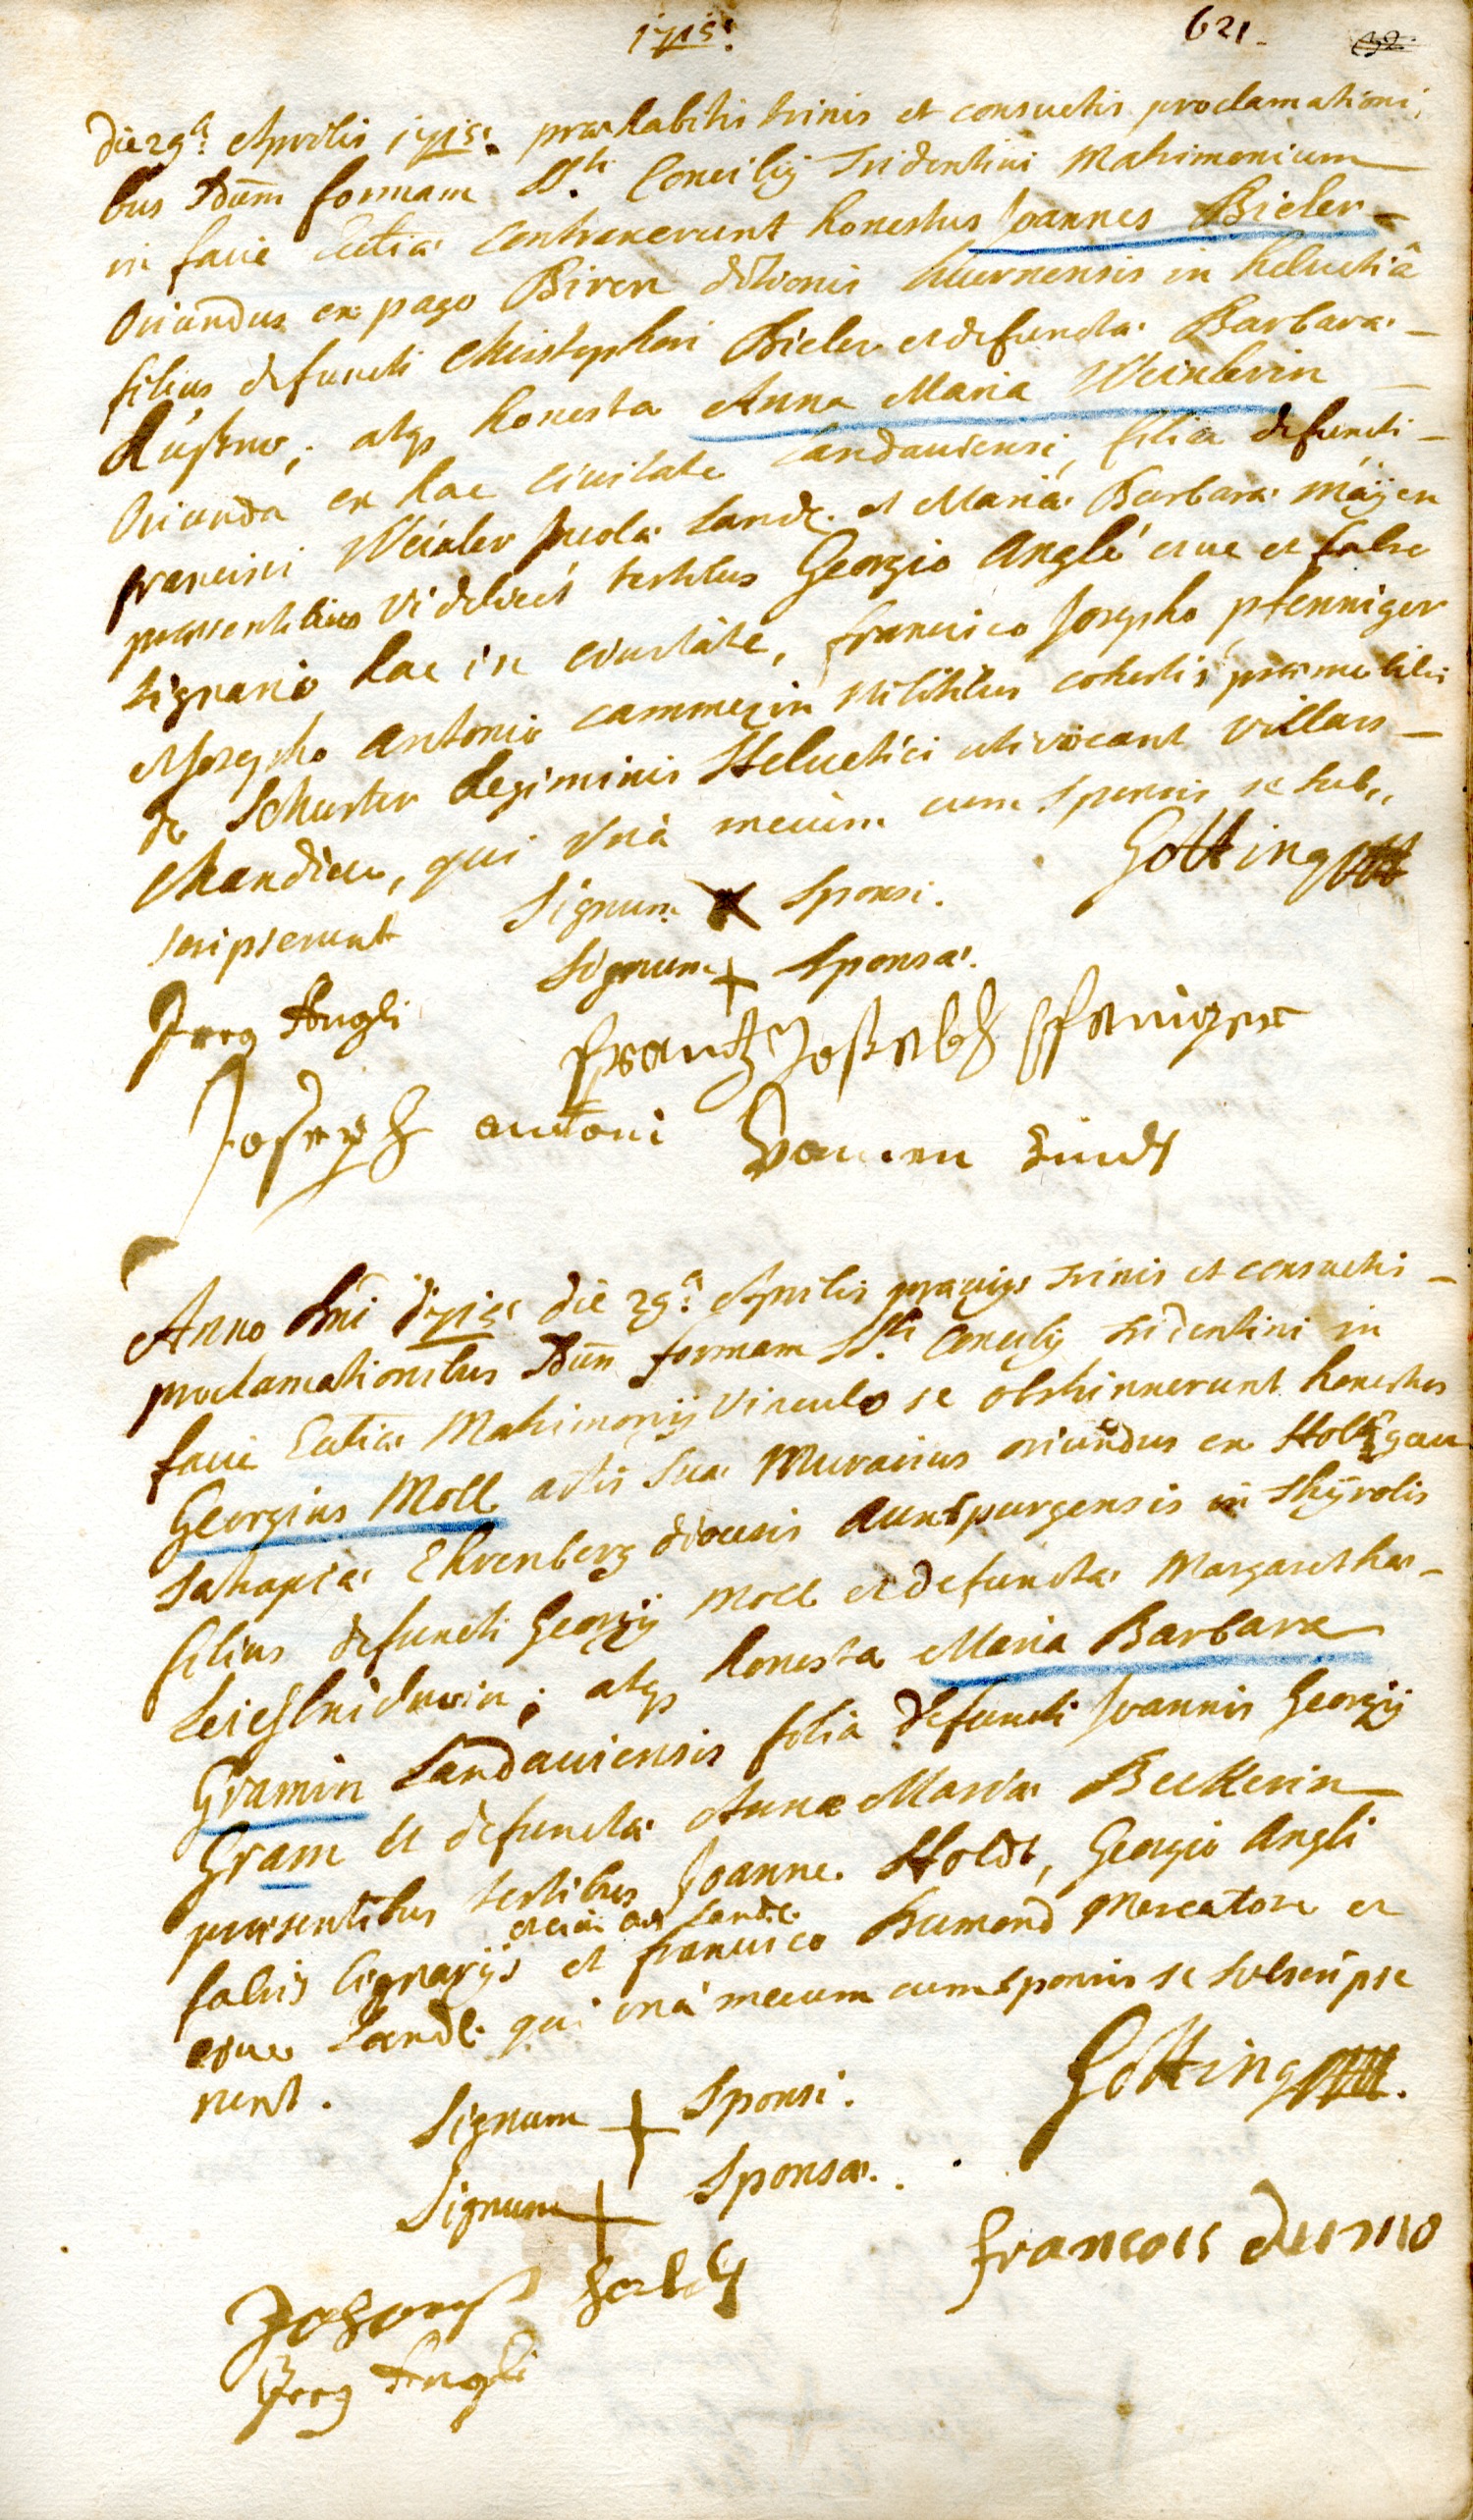 1715. 621. 32
die 29ª Aprilis 1715. præhabitis trinis et consuetis proclamationi,
bus s̄dūm formam Ss.ti Concilij Tridentini Matrimonium
in facie Ecctiæ contraxerunt honestus Joannes Bieler
Oriundus ex pago Biren ditionis lucernensis in helvetiâ
filius defuncti Christophori Bieler et defunctæ Barbaræ
; atq honesta Anna Maria Weixlerin
Orianda ex hac civitate Landaviensi, filia defuncti
Francisci Weixler Incolæ Land. et Mariæ Barbaræ Mäÿen
præsentibus videlicet testibus Georgio Angle cive et fabro
lignario hac in civitate, francisco Josepho pfenniger
et Josepho Antonio cammezin Militibus cohortis
de Schuster Regiminis Helvetici uti vocant villars
Chandieu, qui unà mecum cum sponsis se sub,,
scripserunt Gotting
Signum X Sponsi.
Signum + Sponsæ.
Jerg Angli
frantz Joseabh pfaniger
Joseph antoni
Anno Dn̄i 1715 die 29ª Aprilis prævijs trinis et consuetis
proclamationibus s̄dūm formam Ss.ti Concilij tridentini in
facie Ecctiæ Matrimonij vinculo se obstrinxerunt honestus
Georgius Moll artis suæ Murarius oriundus ex Holtzgau
Satrapiæ Ehrenberg diocesis Auxspurgensis in thÿrolis
filius defuncti Georgij Moll et defunctæ Margarethæ
; atq honesta Maria Barbara
Gramin Landaviensis filia defuncti Joannis Georgij
Gram et defunctæ Annæ Mariæ Beckerin
præsentibus testibus Joanne Holdt, Georgio Angli
Land.
fabris lignarijs et francisco Dumond Mercatore et
cive Land. qui unà mecum cum sponsis se subscripse
runt. Gotting
Signum + Sponsi.
Signum + Sponsæ.
francois dumo
Johans
Jerg Angli